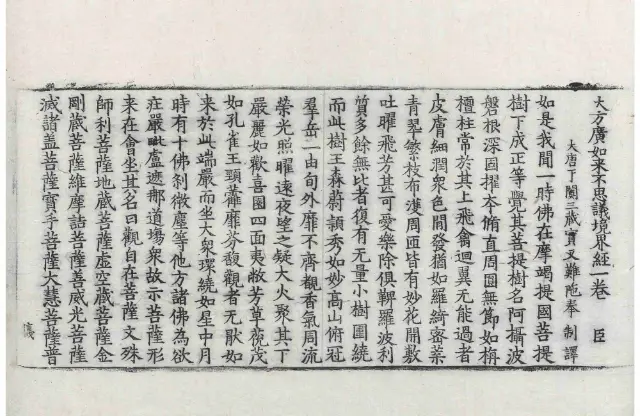 大方廣如来不思議境界經一卷 臣
大唐于闐三藏實叉難陁奉 制譯
如是我聞一時佛在摩竭提國菩提
樹下成正等覺其菩提樹名阿攝波
磐根深固擢本脩直周圓無節如栴
檀柱常於其上飛禽迴翼無能過者
皮膚細潤衆色間發猶如羅綺密葉
青翠繁枝布濩周匝皆有妙花開敷
吐曜飛芳甚可愛樂除俱鞞羅波利
質多餘無比者復有无量小樹圍繞
而此樹王森蔚頴秀如妙高山俯冠
羣岳一由旬外靡不齊觀香氣周流
榮光照曜遠夜望之疑大火聚其下
嚴麗如歡喜園四面夷敞芳草蔇茂
如孔雀王頸葳蕤芬馥觀者无猒如
来於此端嚴而坐大衆環繞如星中月
時有十佛剎微塵等他方諸佛為欲
莊嚴毗盧遮那道場衆故示菩薩形
来在會坐其名曰觀自在菩薩文殊
師利菩薩地藏菩薩虛空藏菩薩金
剛藏菩薩維摩詰菩薩善威光菩薩
滅諸盖菩薩寳手菩薩大慧菩薩普